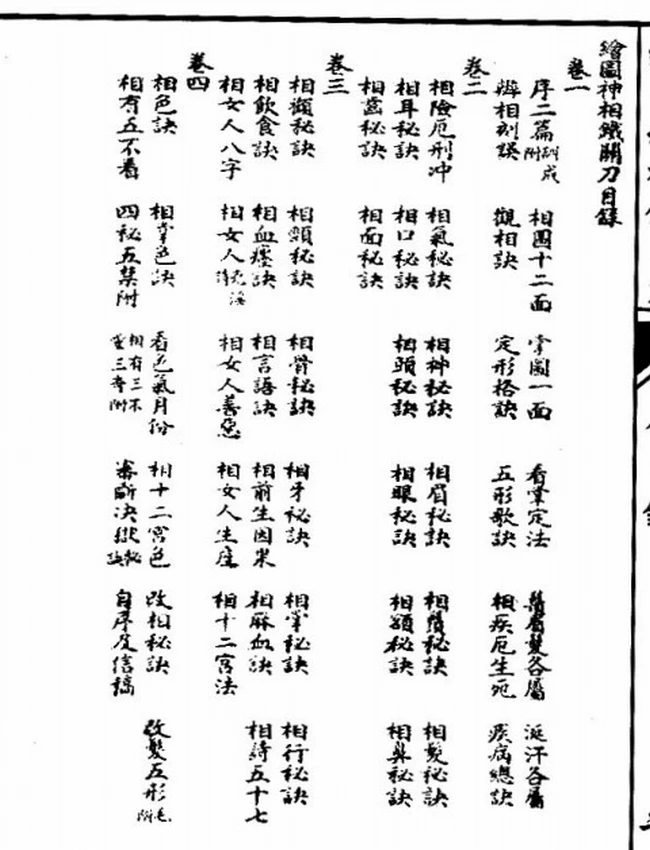 繪圖神相鐵關刀目錄
卷一
序二篇 附訓戒 相圖十二面 掌圖一面 看掌定法 鬚眉髮各屬 涎汗各屬
辨相刻誤 觀相訣 定形格訣 五形歌訣 相疾厄生死 疾病總訣
卷二
相險厄刑冲 相氣秘訣 相神秘訣 相眉秘訣 相鬚秘訣 相髮秘訣
相耳秘訣 相口秘訣 相頭秘訣 相眼秘訣 相額秘訣 相鼻秘訣
相齒秘訣 相面秘訣
卷三
相顴秘訣 相頸秘訣 相骨秘訣 相牙秘訣 相掌秘訣 相行秘訣
相飲食訣 相血壅訣 相言語訣 相前生因果 相麻血訣 相詩五十七
相女人八字 相女人 相女人善惡 相女人生產 相十二宮法
卷四
相色訣 相掌色訣 看色氣月份 相十二宮色 改相秘訣 改髮五形 毛附
相有五不看 四秘五禁附 相有三不 三奇附 審斷決獄秘訣 自序及信稿